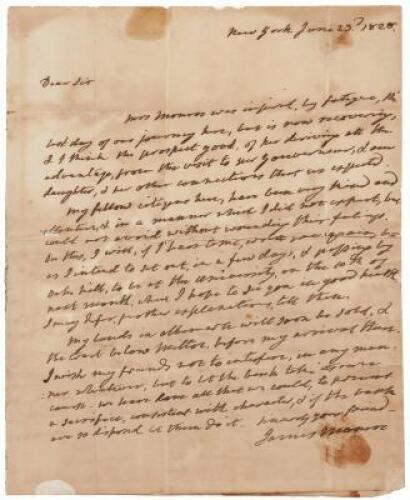 New York June 23d 1828
Dear Sir
Mrs Monroe was injured, by fatigue, the
last day of our journey here, but is now recovering,
& I think the prospect good, of her deriving all the
advantage, from the visit to Mr Gouverneur, & our
daughter, & her other connections that we expected.
My fellow citizens here, have been very kind and
attentive, & in a manner which I did not expect, but
could not avoid without wounding their feelings.
On this, I will, if I have time, write you again, but
as I intend to set out, in a few days, & passing by
Oak hill, to be at the University, on the 10th of
next month, where I hope to see you in good health
I may defer, further explanations, till then.
My lands in Albemarle will soon be sold, &
the lower, before my arrival there.
I wish my friends not to interfere, in any man
ner whatever, but to let the bank take its own
course. We have done all that we could, to prevent
a sacrifice, consistent with character, & if the bank
are so disposed let them do it. your friend
James Monroe